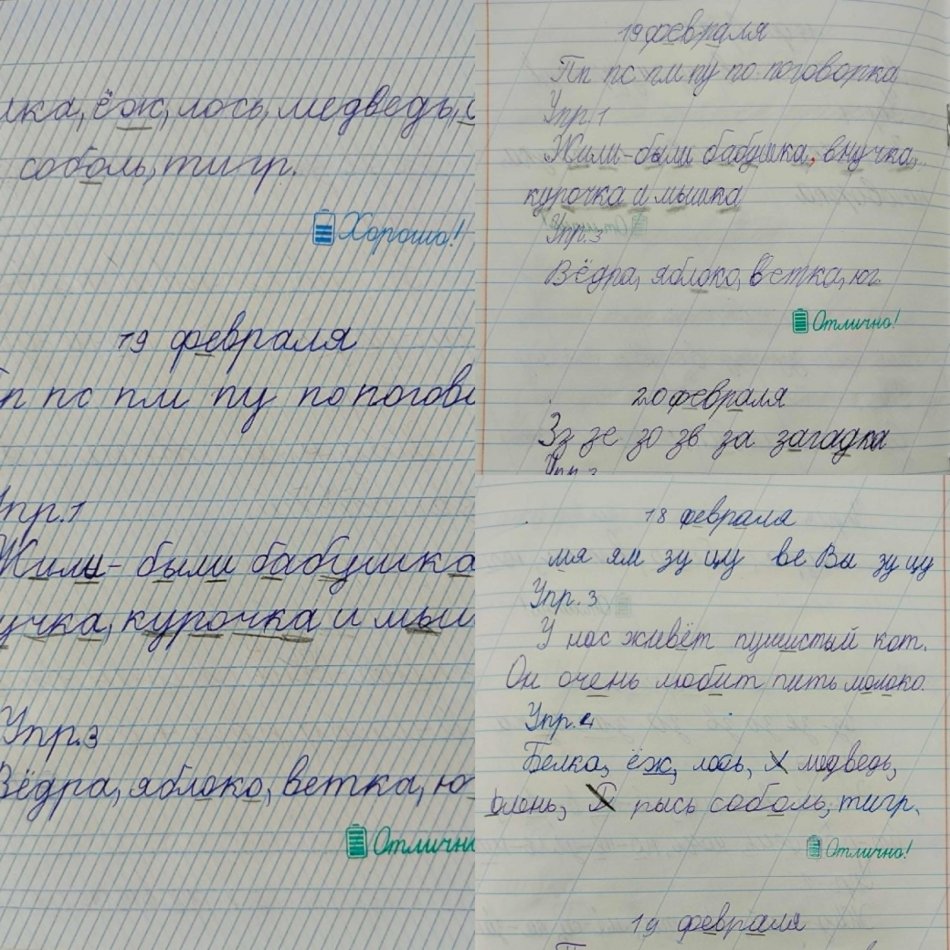 ёж, лось, медведь,
соболь, тигр.
Хорошо!
19 февраля
пс пм пу по погово
Упр.1
Жили-были бабушка
учка, курочка и мыш
Упр.3
Вёдра, яблоко, ветка, ю
Отлично
19 февраля
Пп пс пм пу по поговорка
Упр.1
Жили-были бабушка, внучка,
курочка и мышка
Упр.3
Вёдра, яблоко, ветка, юг
Отлично!
20 февраля
Зз зе зо зв за загадка
18 февраля
мя ям зу цу ве Ви зу цу
Упр.3
У нас живёт пушистый кот.
Он очень любит пить молоко.
Упр.4
Белка, ёж, лось, медведь,
олень, рысь соболь, тигр.
Отлично!
19 февраля